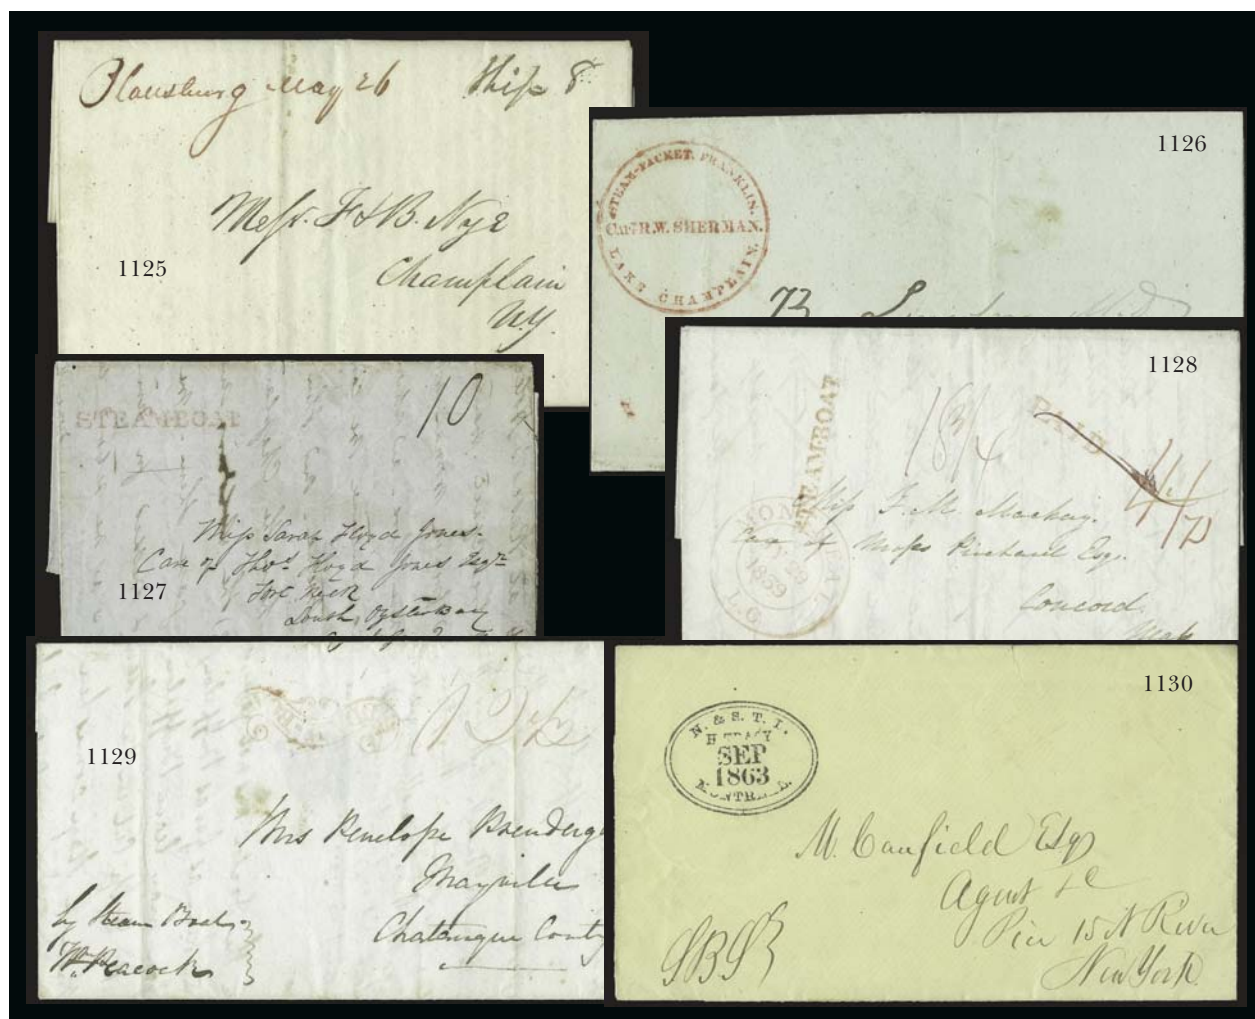 Plattsburg May 26 Ship 8
Messrs. F & B. Nye
Champlain
N.Y.
1125
1126
STEAM-PACKET. FRANKLIN.
CAPT R. W. SHERMAN.
LAKE CHAMPLAIN.
1127
STEAMBOAT
10
Miss Sarah Floyd Jones.
Care of Thos. Floyd Jones Esqr
Fort Neck
South Oysterbay
1128
STEAMBOAT
18 3/4
PAID
MONTREAL
1839
L.C.
Miss F. M. Mackay.
Care of Moses Prichard Esq.
Concord
1129
Mrs Penelope Prenderga
Mayville
Chatauque County
by Steam Boat
Wm Peacock
1130
N. & S. T. I.
H TRACY
SEP
1863
MONTREAL.
M. Canfield Esq
Agent &c
Pier 15 N River
New York.